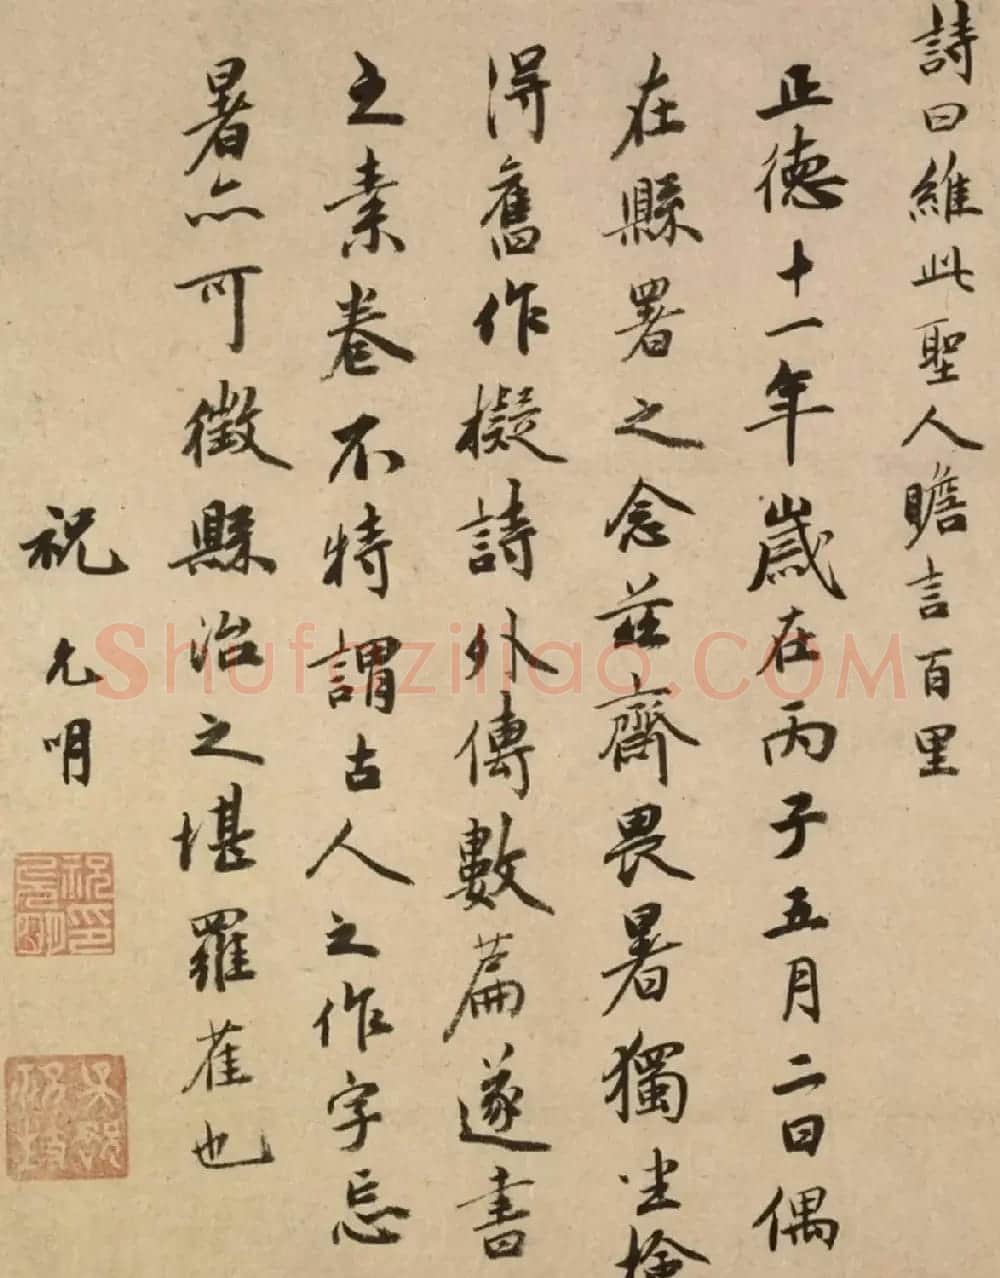 詩曰維此聖人瞻言百里
正德十一年歲在丙子五月二日偶
在縣署之念茲齋畏暑獨坐撿
得舊作擬詩外傳數篇遂書
之素卷不特謂古人之作字忘
暑亦可徵縣治之堪羅雀也
祝允明
Shufaziliao.COM
祝允明印